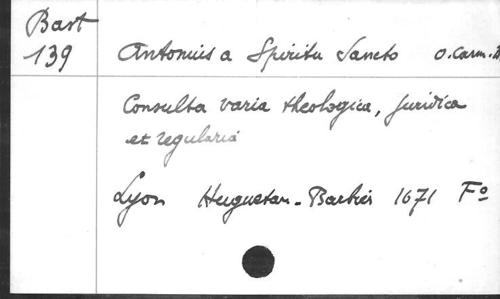 Bart
139
Antonius a Spiritu Sancto O. Carm.
Consulta varia theologica, juridica
et regularia
Lyon Huguetan - Barbier 1671 Fº